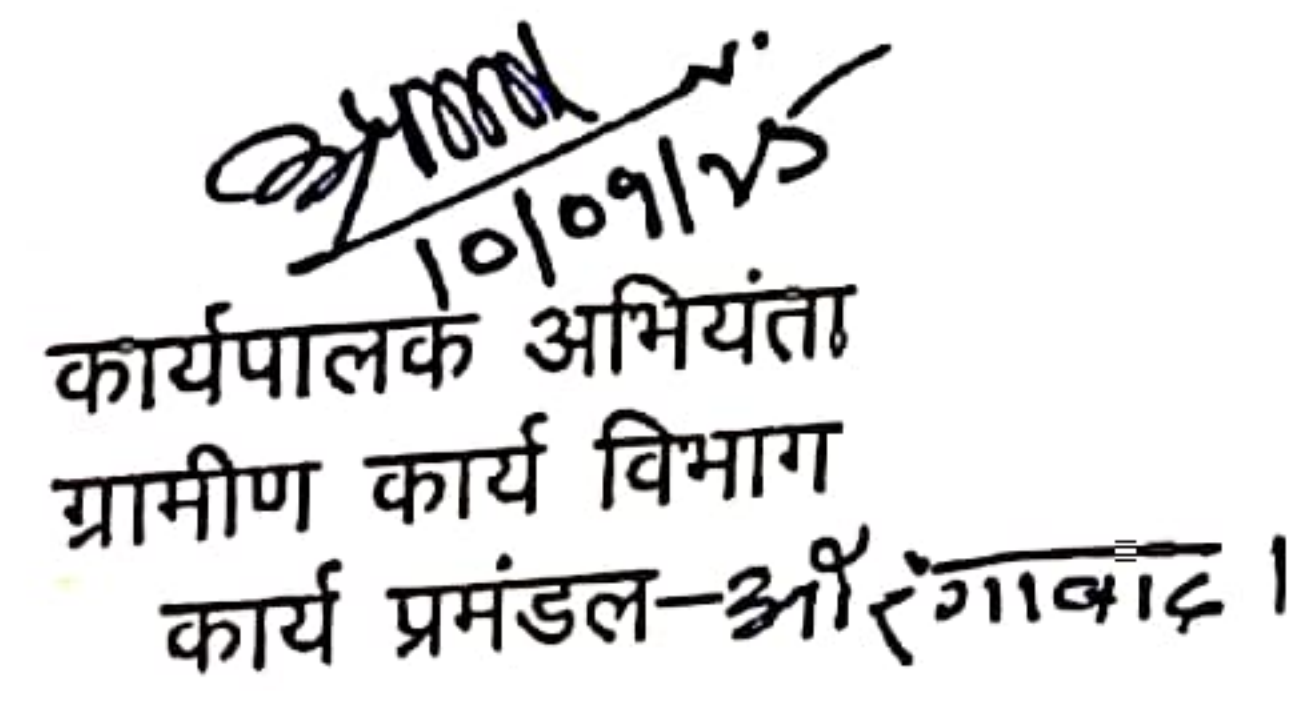 10/09/25
कार्यपालक अभियंता
ग्रामीण कार्य विभाग
कार्य प्रमंडल-औरंगाबाद।